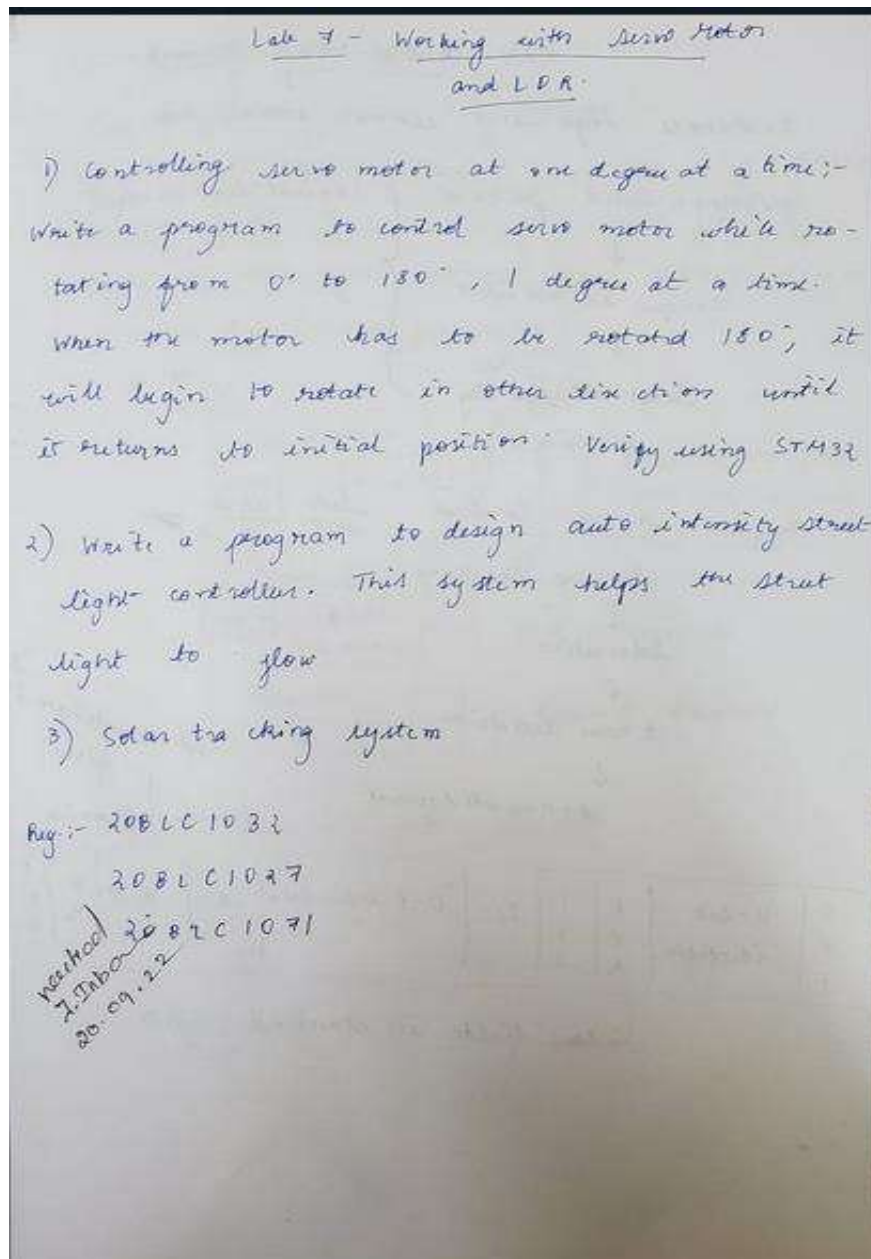 Lab 7 - Working with servo Motor
and LDR.
1) Controlling servo motor at one degree at a time:-
Write a program to control servo motor while ro-
tating from 0° to 180°, 1 degree at a time.
When the motor has to be rotated 180°, it
will begin to rotate in other direction until
it returns to initial position. Verify using STM32
2) Write a program to design auto intensity street
light controller. This system helps the street
light to glow
3) Solar tracking system
Reg:- 20BLC1032
20BLC1027
20BLC1071
20.09.22